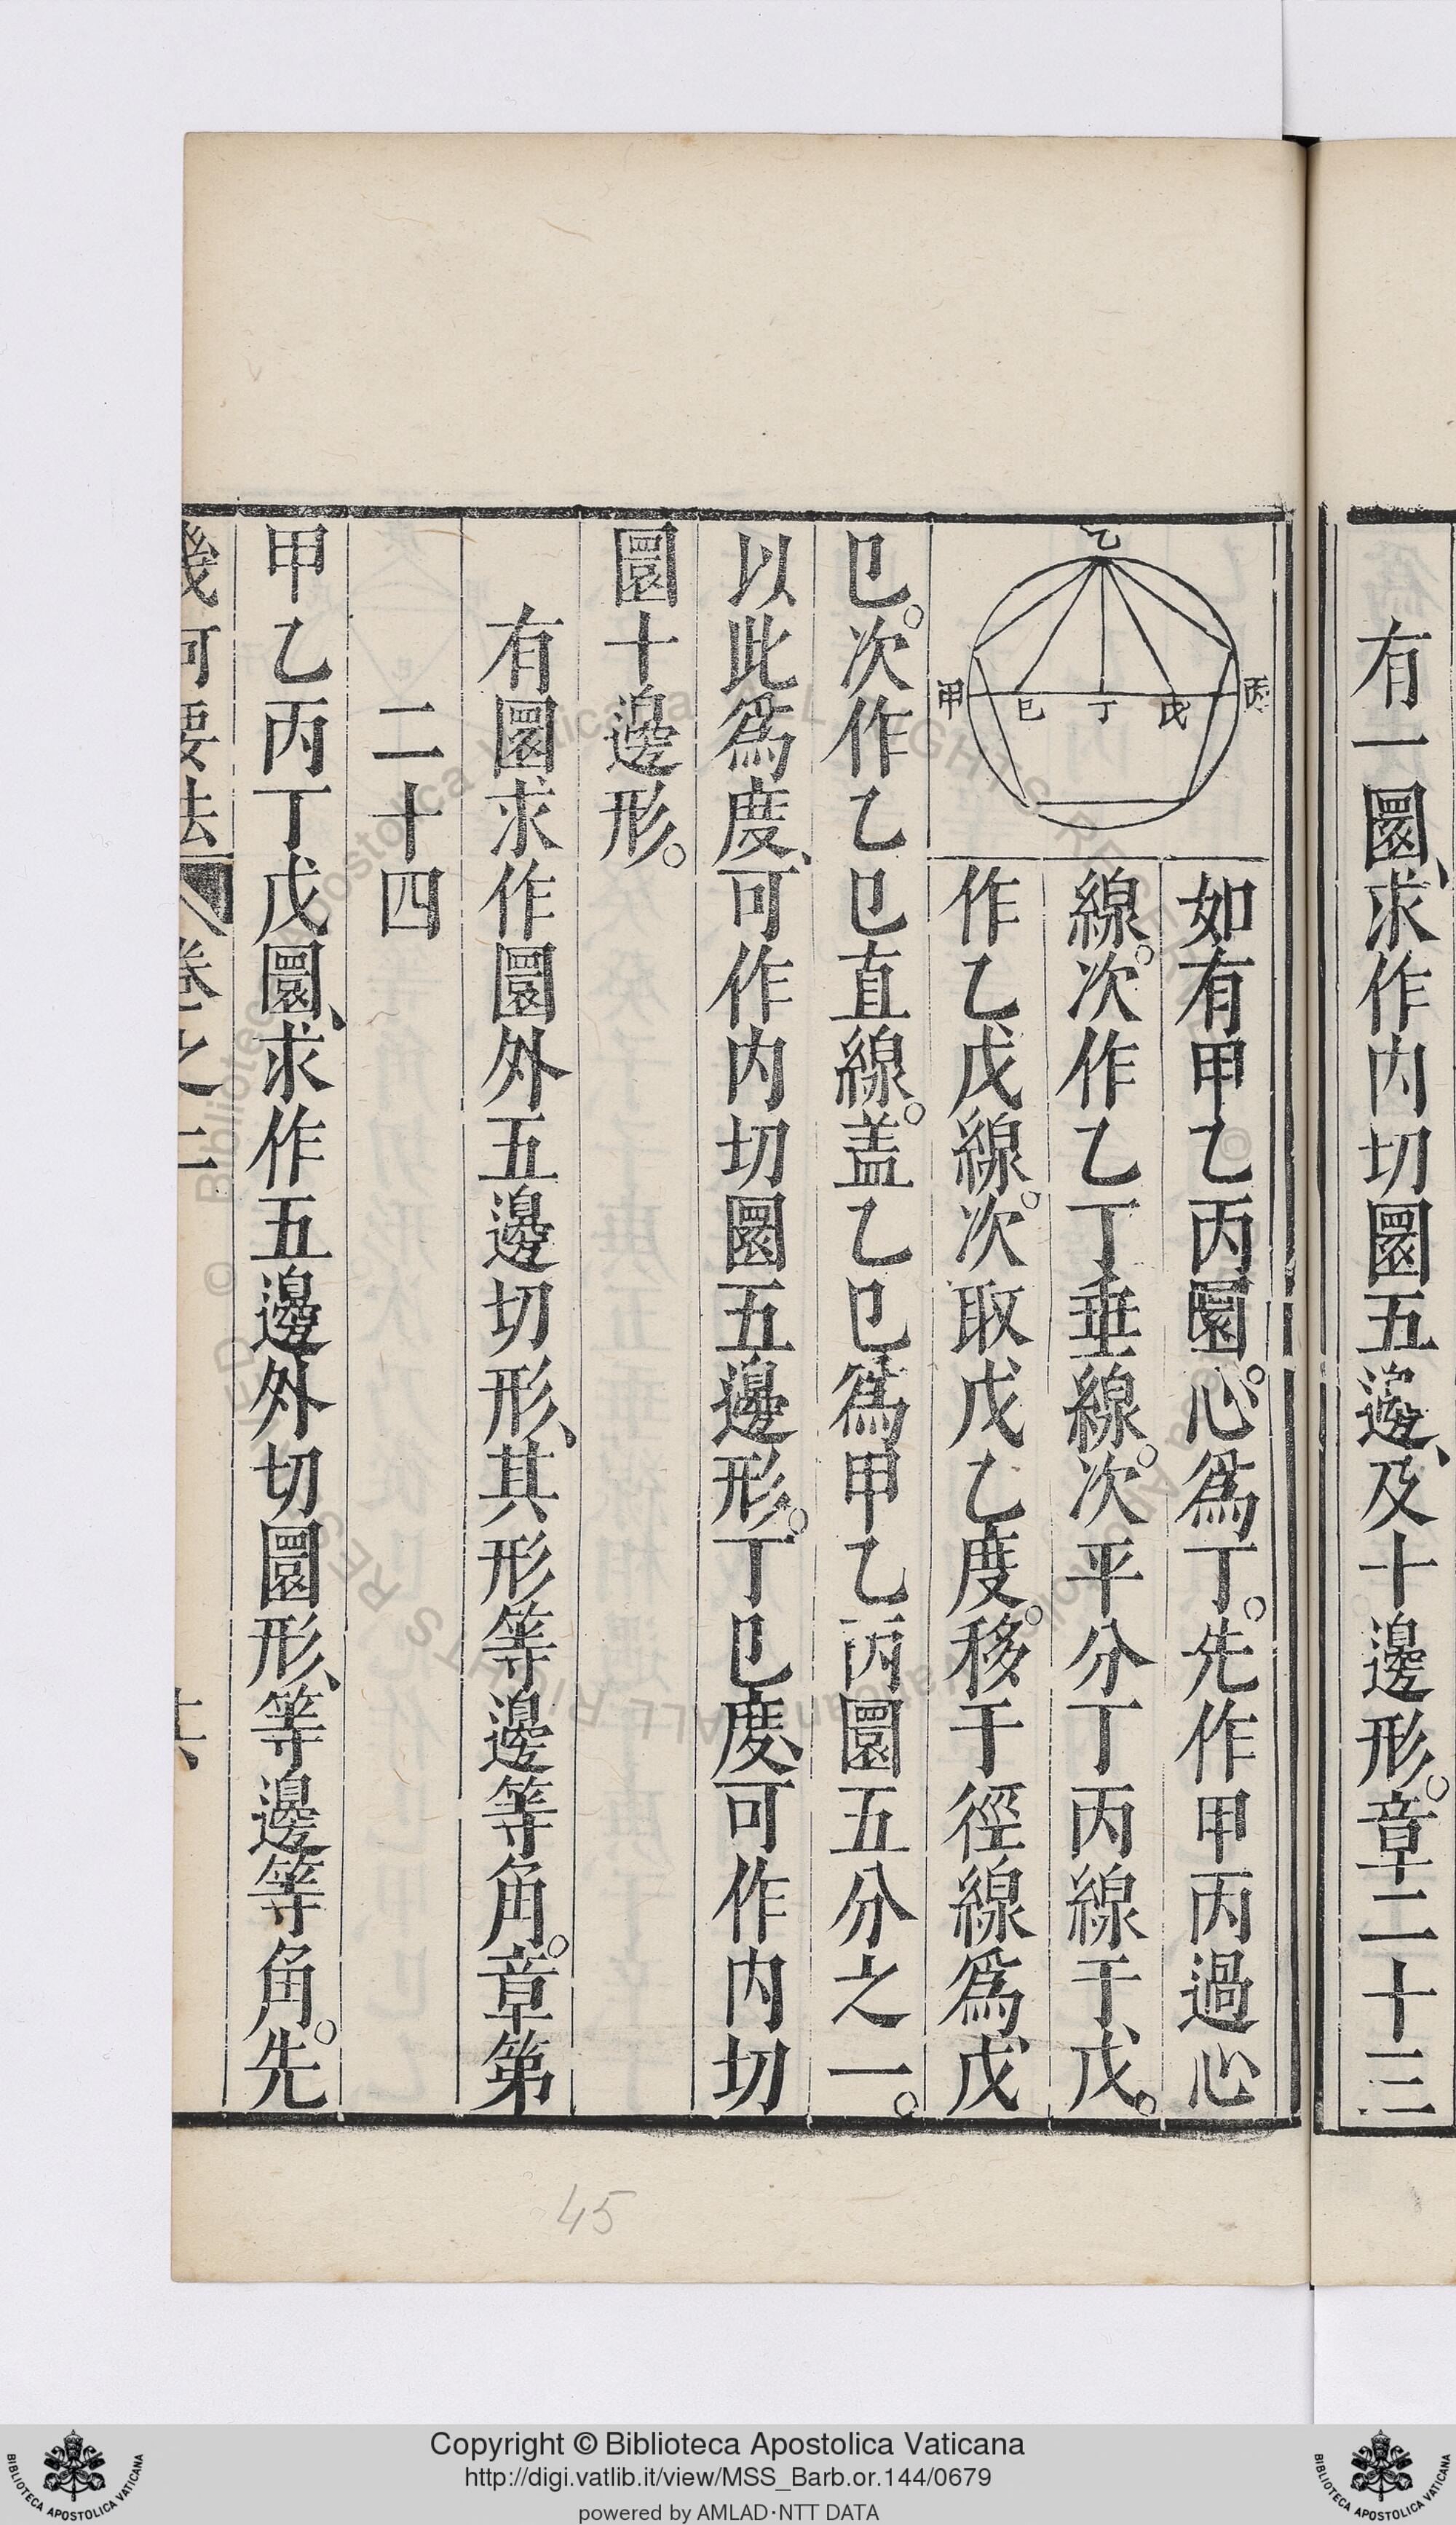 有一圜、求作内切圜五邊、及十邊形。章二十三
乙
甲 巳 丁 戊 丙
如有甲乙丙圜。心爲丁。先作甲丙過心
線。次作乙丁垂線。次平分丁丙線于戊。
作乙戊線。次取戊乙度。移于徑線爲戊
巳。次作乙巳直線。盖乙巳爲甲乙丙圜五分之一。
以此爲度、可作内切圜五邊形。丁巳度、可作内切
圜十邊形。
有圜求作圜外五邊切形、其形等邊等角。章第
二十四
甲乙丙丁戊圜、求作五邊外切圜形、等邊等角。先
幾何要法 卷之二
45
Copyright © Biblioteca Apostolica Vaticana
http://digi.vatlib.it/view/MSS_Barb.or.144/0679
powered by AMLAD·NTT DATA
BIBLIOTECA APOSTOLICA VATICANA
BIBLIOTECA APOSTOLICA VATICANA